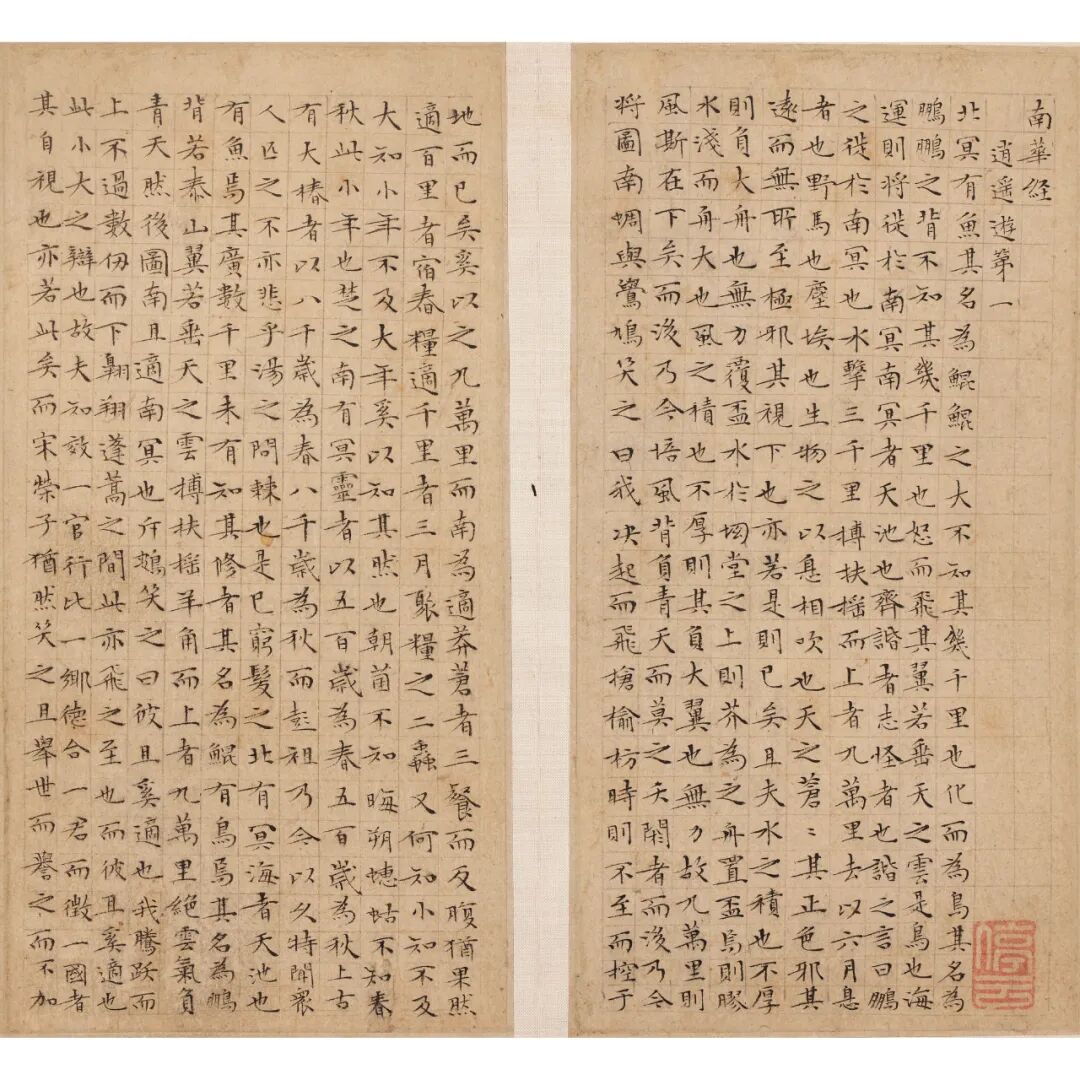 南華経
逍遥遊第一
北冥有魚其名為鯤鯤之大不知其幾千里也化而為鳥其名為
鵬鵬之背不知其幾千里也怒而飛其翼若垂天之雲是鳥也海
運則將徙於南冥南冥者天池也齊諧者志怪者也諧之言曰鵬
之徙於南冥也水擊三千里搏扶揺而上者九萬里去以六月息
者也野馬也塵埃也生物之以息相吹也天之蒼〻其正色邪其
遠而無所至極邪其視下也亦若是則已矣且夫水之積也不厚
則負大舟也無力覆盃水於坳堂之上則芥為之舟置盃焉則膠
水淺而舟大也風之積也不厚則其負大翼也無力故九萬里則
風斯在下矣而後乃今培風背負青天而莫之夭閼者而後乃今
將圖南蜩與鷽鳩笑之曰我决起而飛搶榆枋時則不至而控于
地而已矣奚以之九萬里而南為適莽蒼者三餐而反腹猶果然
適百里者宿舂糧適千里者三月聚糧之二蟲又何知小知不及
大知小年不及大年奚以知其然也朝菌不知晦朔蟪蛄不知春
秋此小年也楚之南有冥靈者以五百歲為春五百歲為秋上古
有大椿者以八千歲為春八千歲為秋而彭祖乃今以久特聞衆
人匹之不亦悲乎湯之問棘也是已窮髮之北有冥海者天池也
有魚焉其廣數千里未有知其修者其名為鯤有鳥焉其名為鵬
背若泰山翼若垂天之雲搏扶揺羊角而上者九萬里絕雲氣負
青天然後圖南且適南冥也斥鴳笑之曰彼且奚適也我騰躍而
上不過數仞而下翱翔蓬蒿之間此亦飛之至也而彼且奚適也
此小大之辯也故夫知效一官行比一鄉德合一君而徵一國者
其自視也亦若此矣而宋榮子猶然笑之且舉世而譽之而不加